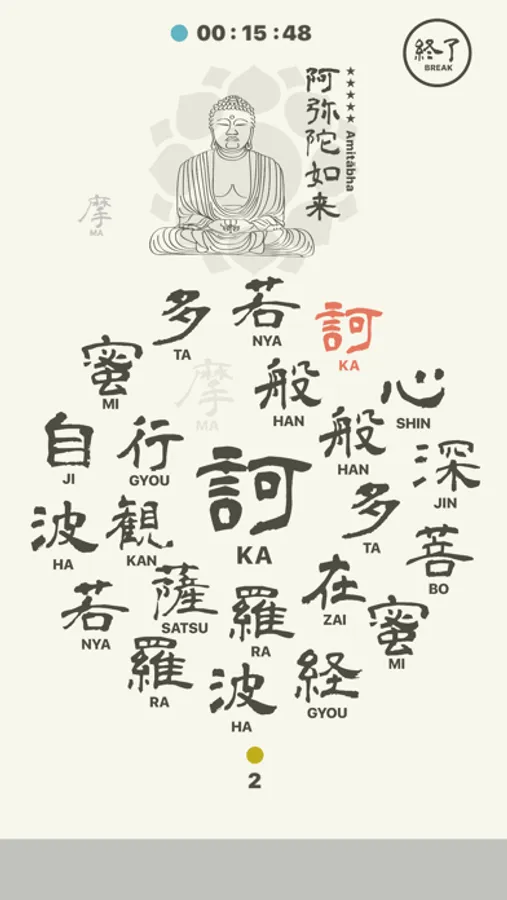 00:15:48
終了
BREAK
阿弥陀如来
★★★★★ Amitābha
摩
MA
多
TA
若
NYA
訶
KA
蜜
MI
摩
MA
般
HAN
心
SHIN
自
JI
行
GYOU
般
HAN
深
JIN
訶
KA
波
HA
観
KAN
多
TA
菩
BO
若
NYA
薩
SATSU
羅
RA
在
ZAI
蜜
MI
羅
RA
波
HA
経
GYOU
2